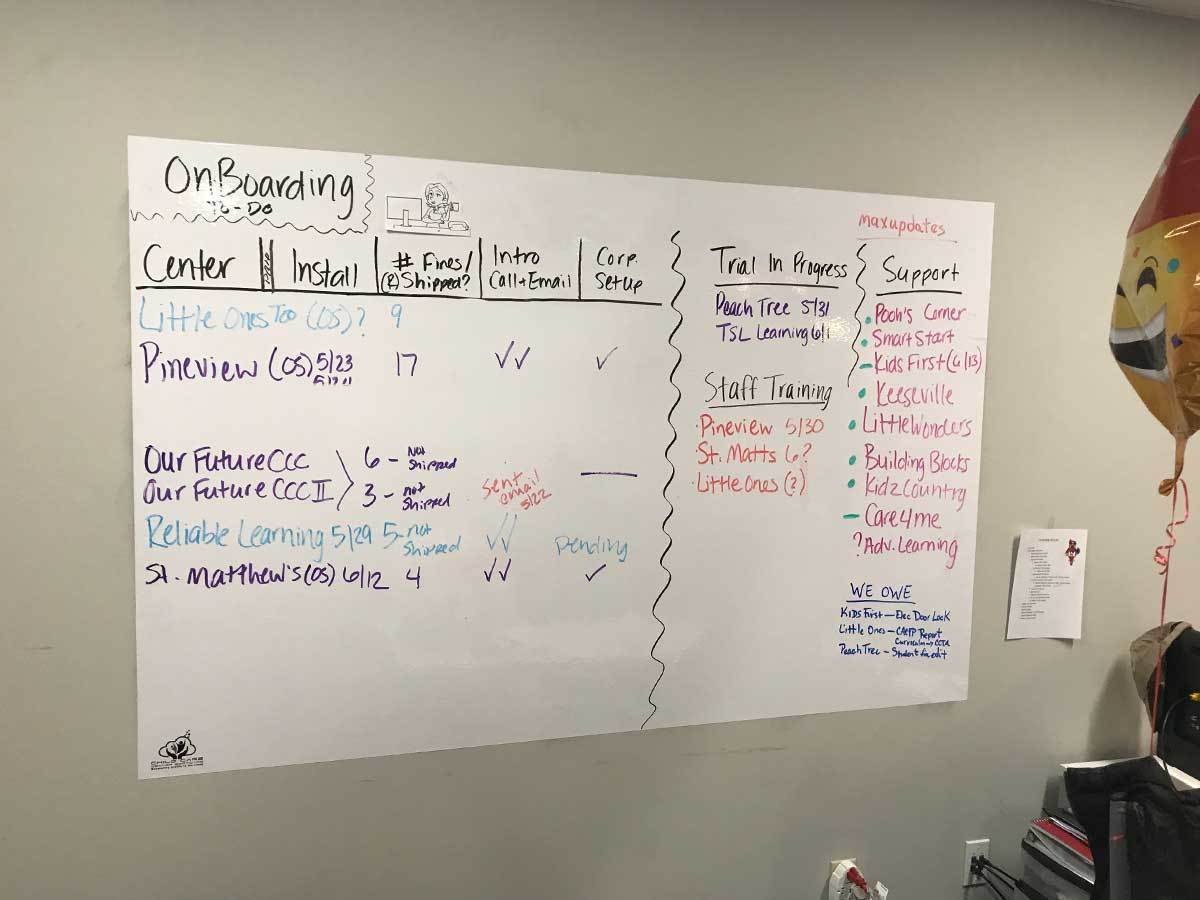 OnBoarding
To-Do
Center Install # Fines/ Intro Corp.
(?) Shipped? Call+Email Setup
Little Ones Too (OS)? 9
Pineview (OS) 5/23 17 ✓✓ ✓
Our Future CCC 6 - Not Shipped
Our Future CCC II 3 - not Shipped
sent email 5/22 —
Reliable Learning 5/29 5 - not Shipped ✓✓ pending
St. Matthew's (OS) 6/12 4 ✓✓ ✓
Trial In Progress
Peach Tree 5/31
TSL Learning 6/1
Staff Training
·Pineview 5/30
·St. Matts 6?
·Little Ones (?)
maxupdates
Support
• Pooh's Corner
• Smart Start
- Kids First (6/13)
• Keeseville
• Little Wonders
• Building Blocks
• Kidz Country
- Care4me
? Adv. Learning
WE OWE
Kids First — Elec Door Lock
Little Ones — CACFP Report
Peach Tree — Student
CHILD CARE